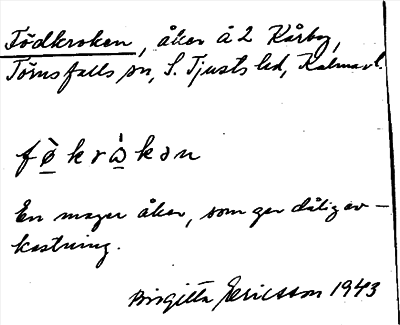 Födkroken, åker å 2 Kårby,
Törnsfalls sn, S. Tjusts hd, Kalmar l.
fø̀krὰkən
En mager åker, som ger dålig av-
kastning.
Birgitta Ericsson 1943